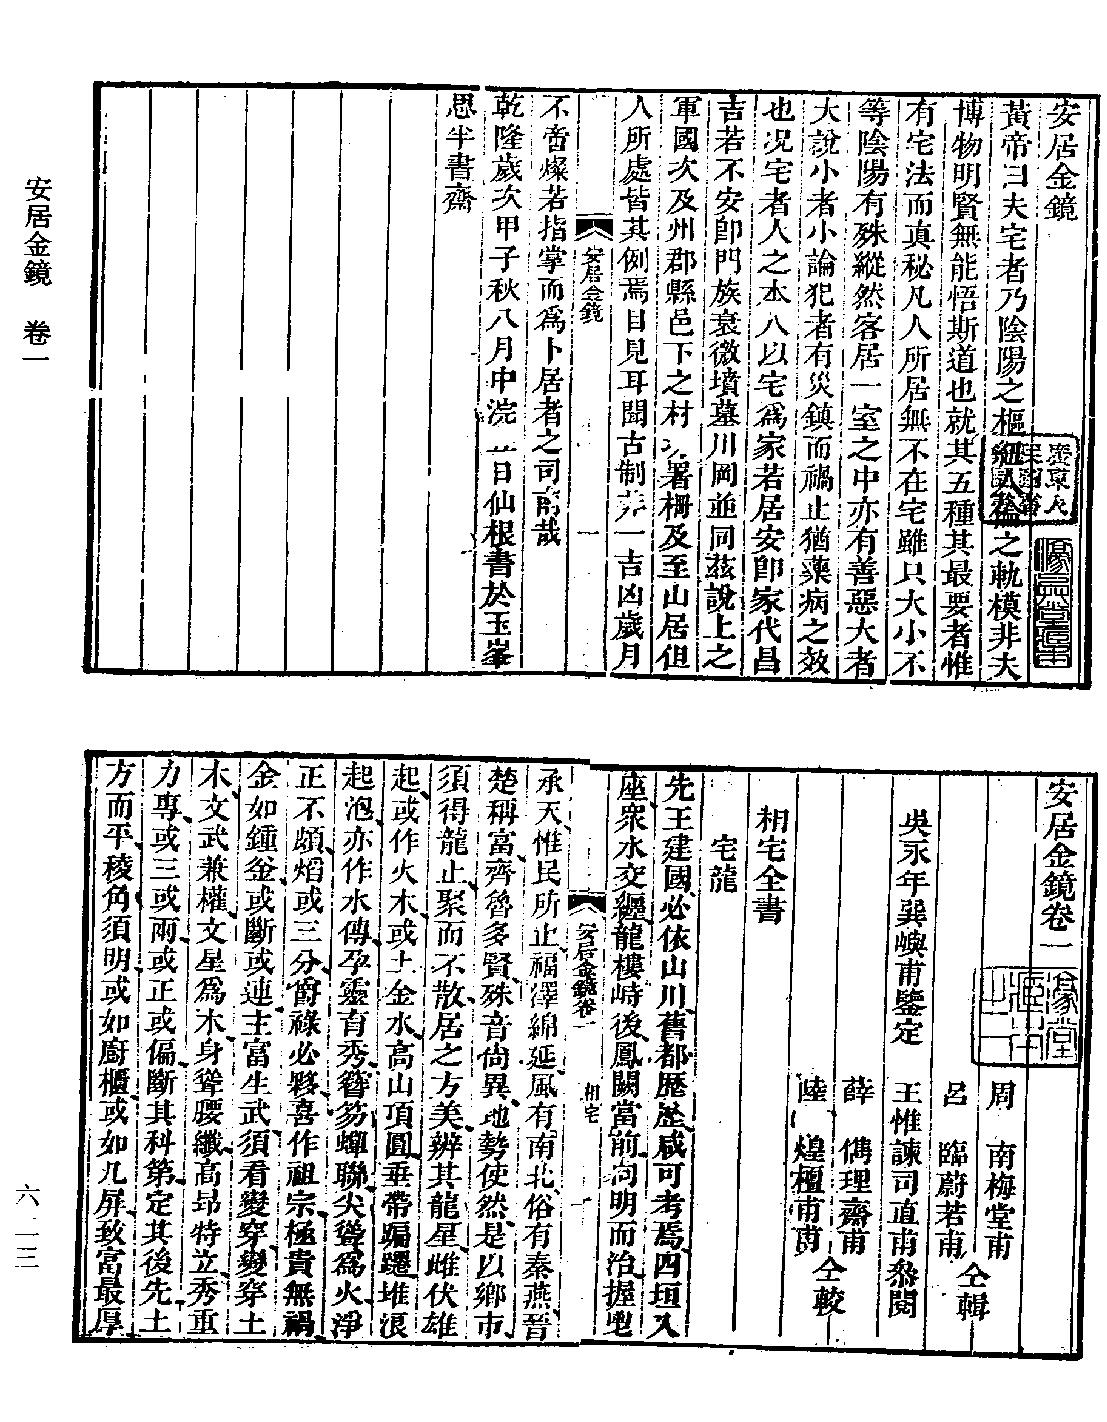 安居金鏡
黃帝曰夫宅者乃陰陽之樞紐人倫之軌模非夫
博物明賢無能悟斯道也就其五種其最要者惟
有宅法而真秘凡人所居無不在宅雖只大小不
等陰陽有殊縱然客居一室之中亦有善惡大者
大說小者小論犯者有災鎮而禍止猶藥病之效
也况宅者人之本人以宅爲家若居安即家代昌
吉若不安卽門族衰微墳墓川岡並同茲說上之
軍國次及州郡縣邑下之村署柵及至山居但
人所處皆其例焉目見耳聞古制一吉凶歲月
安居金鏡
一
不啻燦若指掌而爲卜居者之司南哉
乾隆歲次甲子秋八月中浣一日仙根書於玉峯
思半書齋
安居金鏡卷一
吳永年巽嶼甫鑒定
周南梅堂甫
呂臨蔚若甫
仝輯
王惟諫司直甫叅閱
薛儁理齋甫
陸煌檀甫甫
仝較
相宅全書
宅龍
先王建國必依山川舊都歷歷咸可考焉四垣入
座衆水交纒龍樓峙後鳳闕當前向明而治握乾
安居金鏡卷一
相宅
一
承天惟民所止福澤綿延風有南北俗有秦燕晉
楚稱富齊魯多賢殊音尙異地勢使然是以鄉市
須得龍止聚而不散居之方美辨其龍星雌伏雄
起或作火木或土金水高山頂圓垂帶䠂躚堆浪
起泡亦作水傳孕靈育秀簪笏蟬聯尖聳爲火淨
正不頗焰或三分爵祿必夥喜作祖宗極貴無禍
金如鍾釜或斷或連主富生武須看變穿變穿土
木文武兼權文星爲木身聳腰纖高昂特立秀重
力專或三或兩或正或偏斷其科第定其後先土
方而平稜角須明或如廚櫃或如几屏致富最厚
安居金鏡 卷一
六·一三